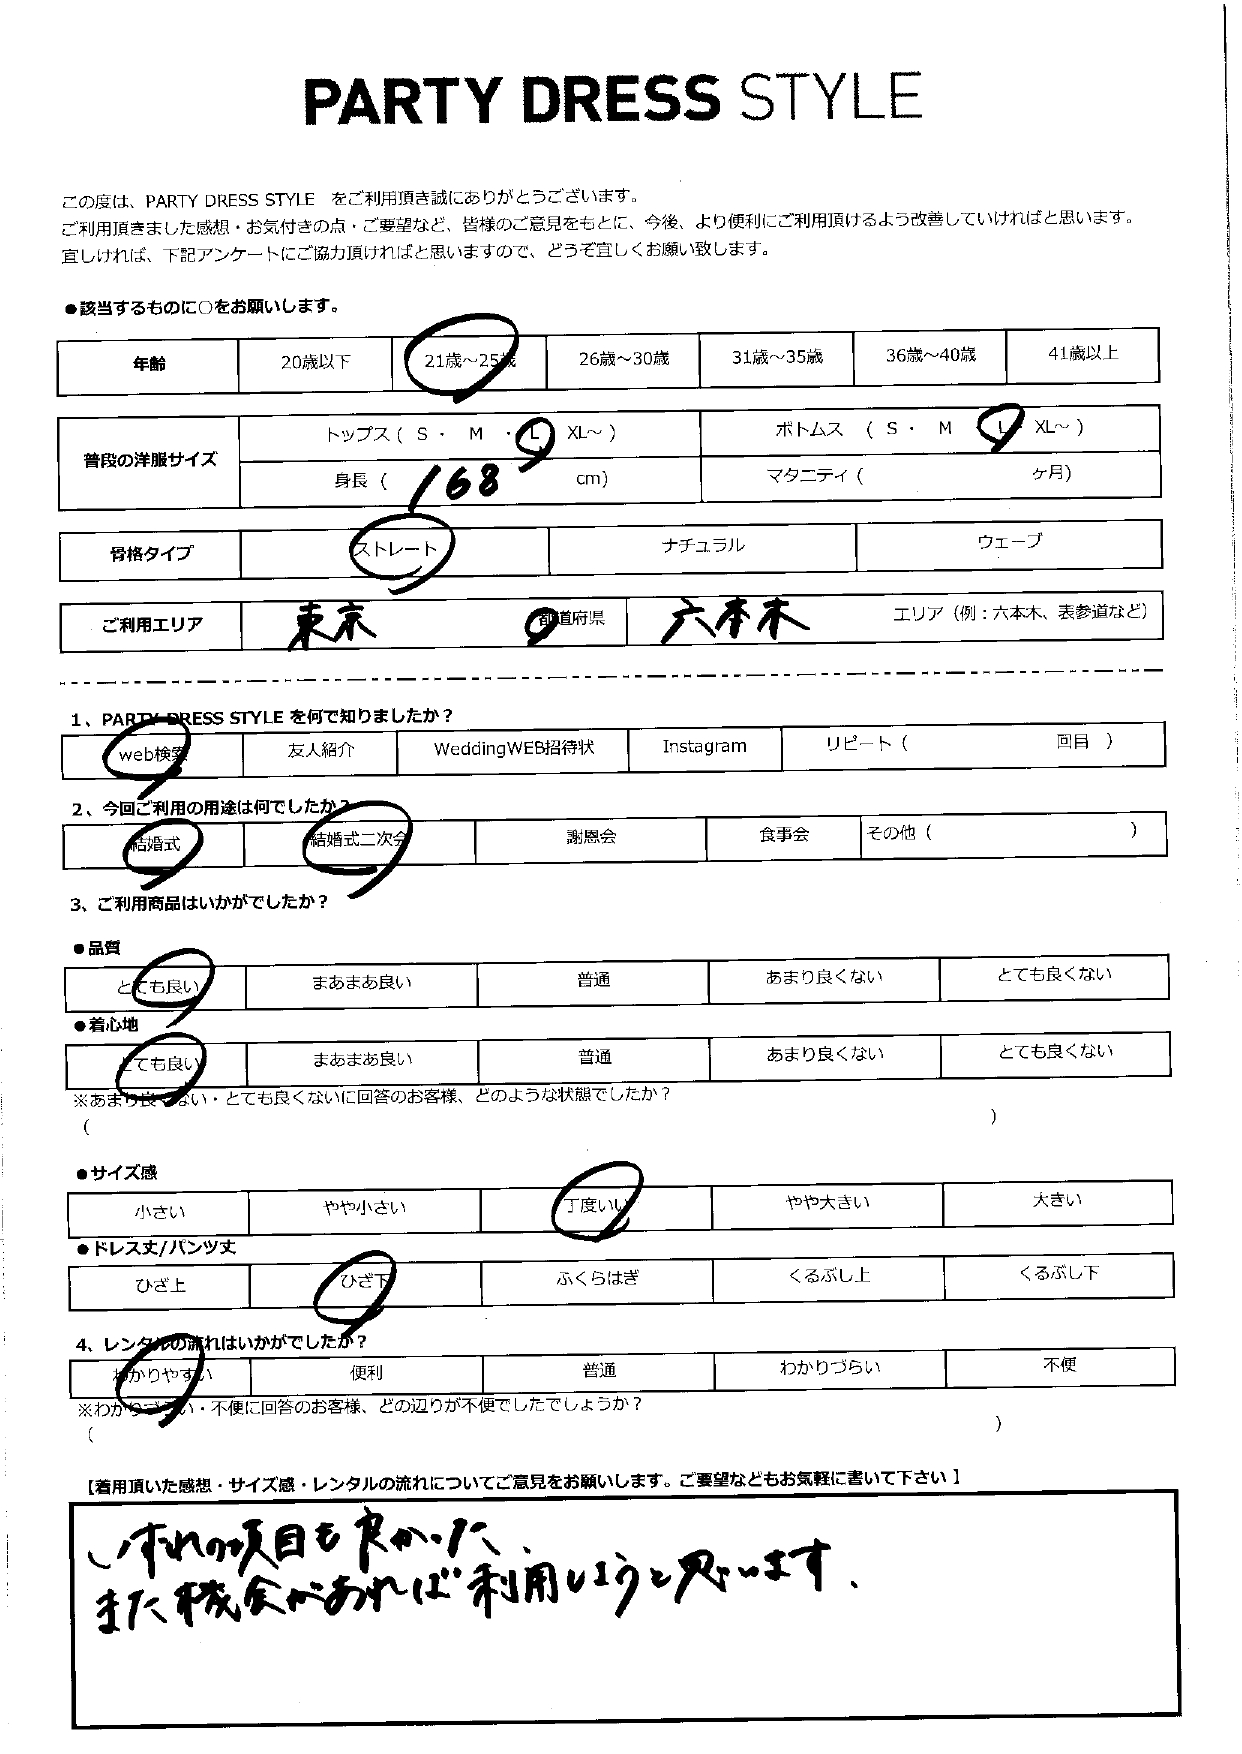 PARTY DRESS STYLE
この度は、PARTY DRESS STYLE をご利用頂き誠にありがとうございます。
ご利用頂きました感想・お気付きの点・ご要望など、皆様のご意見をもとに、今後、より便利にご利用頂けるよう改善していければと思います。
宜しければ、下記アンケートにご協力頂ければと思いますので、どうぞ宜しくお願い致します。
●該当するものに○をお願いします。
年齢 20歳以下 21歳～25歳 26歳～30歳 31歳～35歳 36歳～40歳 41歳以上
普段の洋服サイズ トップス( S ・ M ・ L XL～ ) ボトムス ( S ・ M L ・ XL～ )
身長 ( 168 cm) マタニティ ( ヶ月)
骨格タイプ ストレート ナチュラル ウェーブ
ご利用エリア 東京 都道府県 六本木 エリア（例：六本木、表参道など）
1、PARTY DRESS STYLE を何で知りましたか？
web検索 友人紹介 WeddingWEB招待状 Instagram リピート ( 回目 )
2、今回ご利用の用途は何でしたか？
結婚式 結婚式二次会 謝恩会 食事会 その他 ( )
3、ご利用商品はいかがでしたか？
●品質
とても良い まあまあ良い 普通 あまり良くない とても良くない
●着心地
とても良い まあまあ良い 普通 あまり良くない とても良くない
※あまり良くない・とても良くないに回答のお客様、どのような状態でしたか？
( )
●サイズ感
小さい やや小さい 丁度いい やや大きい 大きい
●ドレス丈/パンツ丈
ひざ上 ひざ下 ふくらはぎ くるぶし上 くるぶし下
4、レンタルの流れはいかがでしたか？
わかりやすい 便利 普通 わかりづらい 不便
※わかりづらい・不便に回答のお客様、どの辺りが不便でしたでしょうか？
( )
【着用頂いた感想・サイズ感・レンタルの流れについてご意見をお願いします。ご要望などもお気軽に書いて下さい】
いずれの項目も良かった、
また機会があれば利用しようと思います.